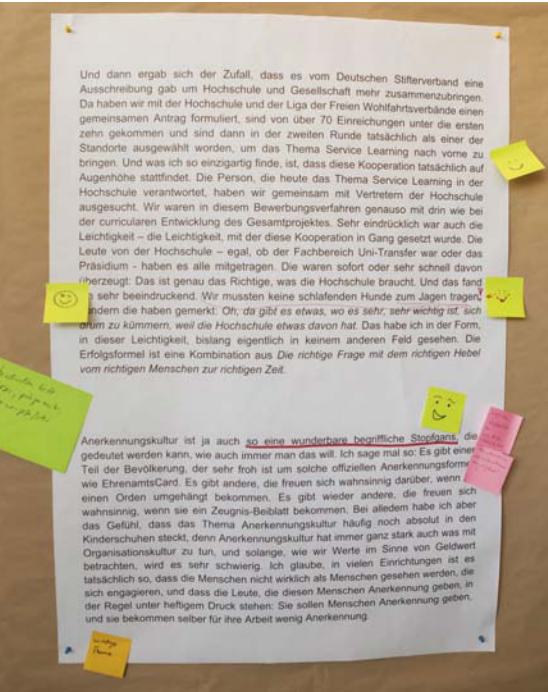 Und dann ergab sich der Zufall, dass es vom Deutschen Stifterverband eine
Ausschreibung gab um Hochschule und Gesellschaft mehr zusammenzubringen.
Da haben wir mit der Hochschule und der Liga der Freien Wohlfahrtsverbände einen
gemeinsamen Antrag formuliert, sind von über 70 Einreichungen unter die ersten
zehn gekommen und sind dann in der zweiten Runde tatsächlich als einer der
Standorte ausgewählt worden, um das Thema Service Learning nach vorne zu
bringen. Und was ich so einzigartig finde, ist, dass diese Kooperation tatsächlich auf
Augenhöhe stattfindet. Die Person, die heute das Thema Service Learning in der
Hochschule verantwortet, haben wir gemeinsam mit Vertretern der Hochschule
ausgesucht. Wir waren in diesem Bewerbungsverfahren genauso mit drin wie bei
der curricularen Entwicklung des Gesamtprojektes. Sehr eindrücklich war auch die
Leichtigkeit – die Leichtigkeit, mit der diese Kooperation in Gang gesetzt wurde. Die
Leute von der Hochschule – egal, ob der Fachbereich Uni-Transfer war oder das
Präsidium - haben es alle mitgetragen. Die waren sofort oder sehr schnell davon
überzeugt: Das ist genau das Richtige, was die Hochschule braucht. Und das fand
sehr beeindruckend. Wir mussten keine schlafenden Hunde zum Jagen tragen,
sondern die haben gemerkt: Oh, da gibt es etwas, wo es sehr, sehr wichtig ist, sich
drum zu kümmern, weil die Hochschule etwas davon hat. Das habe ich in der Form,
in dieser Leichtigkeit, bislang eigentlich in keinem anderen Feld gesehen. Die
Erfolgsformel ist eine Kombination aus Die richtige Frage mit dem richtigen Hebel
vom richtigen Menschen zur richtigen Zeit.
Anerkennungskultur ist ja auch so eine wunderbare begriffliche Stopfgans, die
gedeutet werden kann, wie auch immer man das will. Ich sage mal so: Es gibt einen
Teil der Bevölkerung, der sehr froh ist um solche offiziellen Anerkennungsformen
wie EhrenamtsCard. Es gibt andere, die freuen sich wahnsinnig darüber, wenn
einen Orden umgehängt bekommen. Es gibt wieder andere, die freuen sich
wahnsinnig, wenn sie ein Zeugnis-Beiblatt bekommen. Bei alledem habe ich aber
das Gefühl, dass das Thema Anerkennungskultur häufig noch absolut in den
Kinderschuhen steckt, denn Anerkennungskultur hat immer ganz stark auch was mit
Organisationskultur zu tun, und solange, wie wir Werte im Sinne von Geldwert
betrachten, wird es sehr schwierig. Ich glaube, in vielen Einrichtungen ist es
tatsächlich so, dass die Menschen nicht wirklich als Menschen gesehen werden, die
sich engagieren, und dass die Leute, die diesen Menschen Anerkennung geben, in
der Regel unter heftigem Druck stehen: Sie sollen Menschen Anerkennung geben,
und sie bekommen selber für ihre Arbeit wenig Anerkennung.
wichtiges
Thema